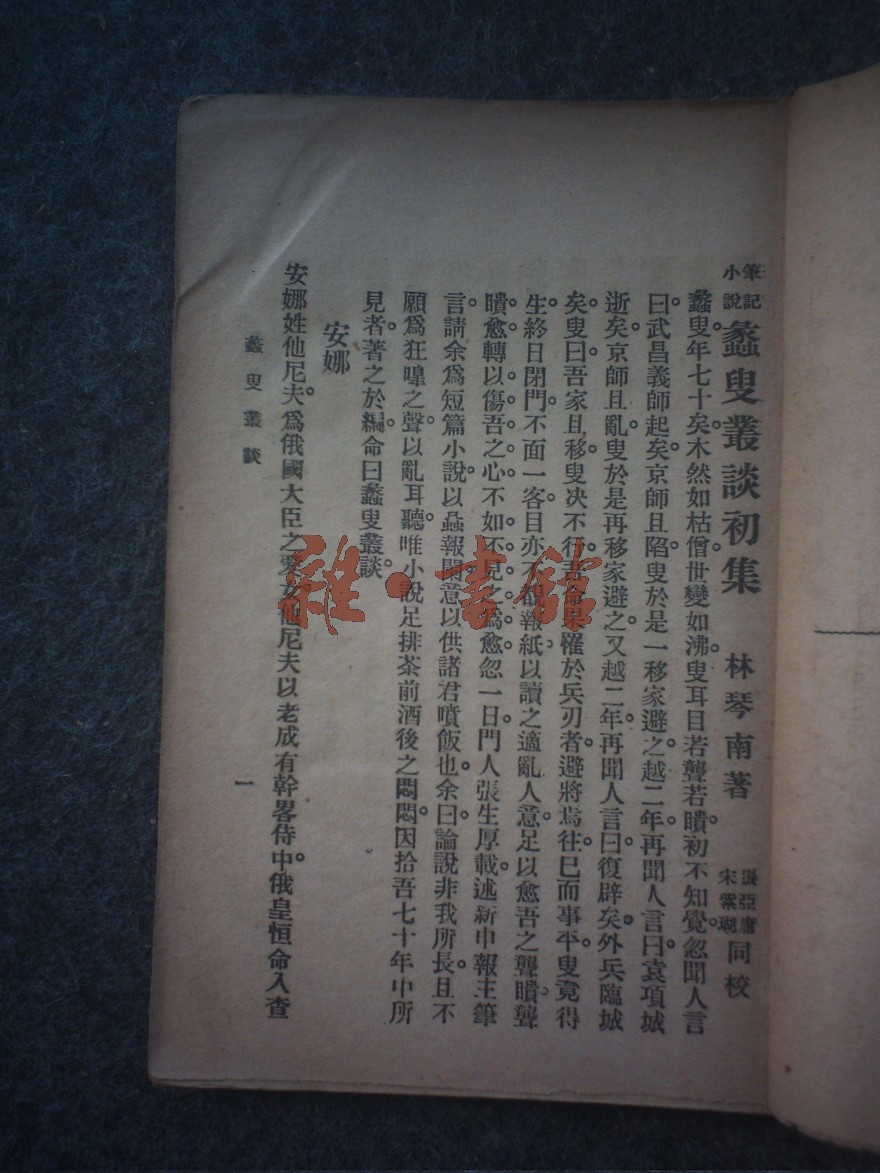 筆記小說 蠡叟叢談初集 林琴南著 張亞庸 宋雲瑚 同校
蠡叟年七十矣木然如枯僧世變如沸叟耳目若聾若瞶初不知覺忽聞人言
曰武昌義師起矣京師且陷叟於是一移家避之越二年再聞人言曰袁項城
逝矣京師且亂叟於是再移家避之又越二年再聞人言曰復辟矣外兵臨城
矣叟曰吾家且移叟决不行吾命果罹於兵刃者避將焉往已而事平叟竟得
生終日閉門不面一客目亦不覩報紙以讀之適亂人意足以愈吾之聾瞶聾
瞶愈轉以傷吾之心不如不見之爲愈忽一日門人張生厚載述新申報主筆
言請余爲短篇小說以蝨報閒意以供諸君噴飯也余曰論說非我所長且不
願爲狂嘷之聲以亂耳聽唯小說足排茶前酒後之悶悶因拾吾七十年中所
見者著之於編命曰蠡叟叢談
安娜
安娜姓他尼夫爲俄國大臣之愛女他尼夫以老成有幹畧侍中俄皇恒命入查
蠡叟叢談
一
雜·書館